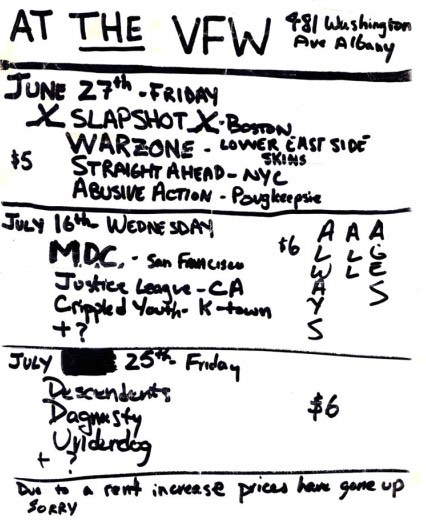 AT THE VFW
481 Washington
Ave Albany
JUNE 27th - FRIDAY
X SLAPSHOT X - BOSTON
WARZONE - LOWER EAST SIDE
SKINS
$5
STRAIGHT AHEAD - NYC
ABUSIVE ACTION - Pougkeepsie
JULY 16th - WEDNESDAY
M.D.C. - San Francisco
Justice League - CA
Crippled Youth - K-town
+ ?
$6
ALWAYS
ALL
AGES
JULY 25th - Friday
Descendents
Dagnasty
Underdog
+ ?
$6
Due to a rent increase prices have gone up
SORRY